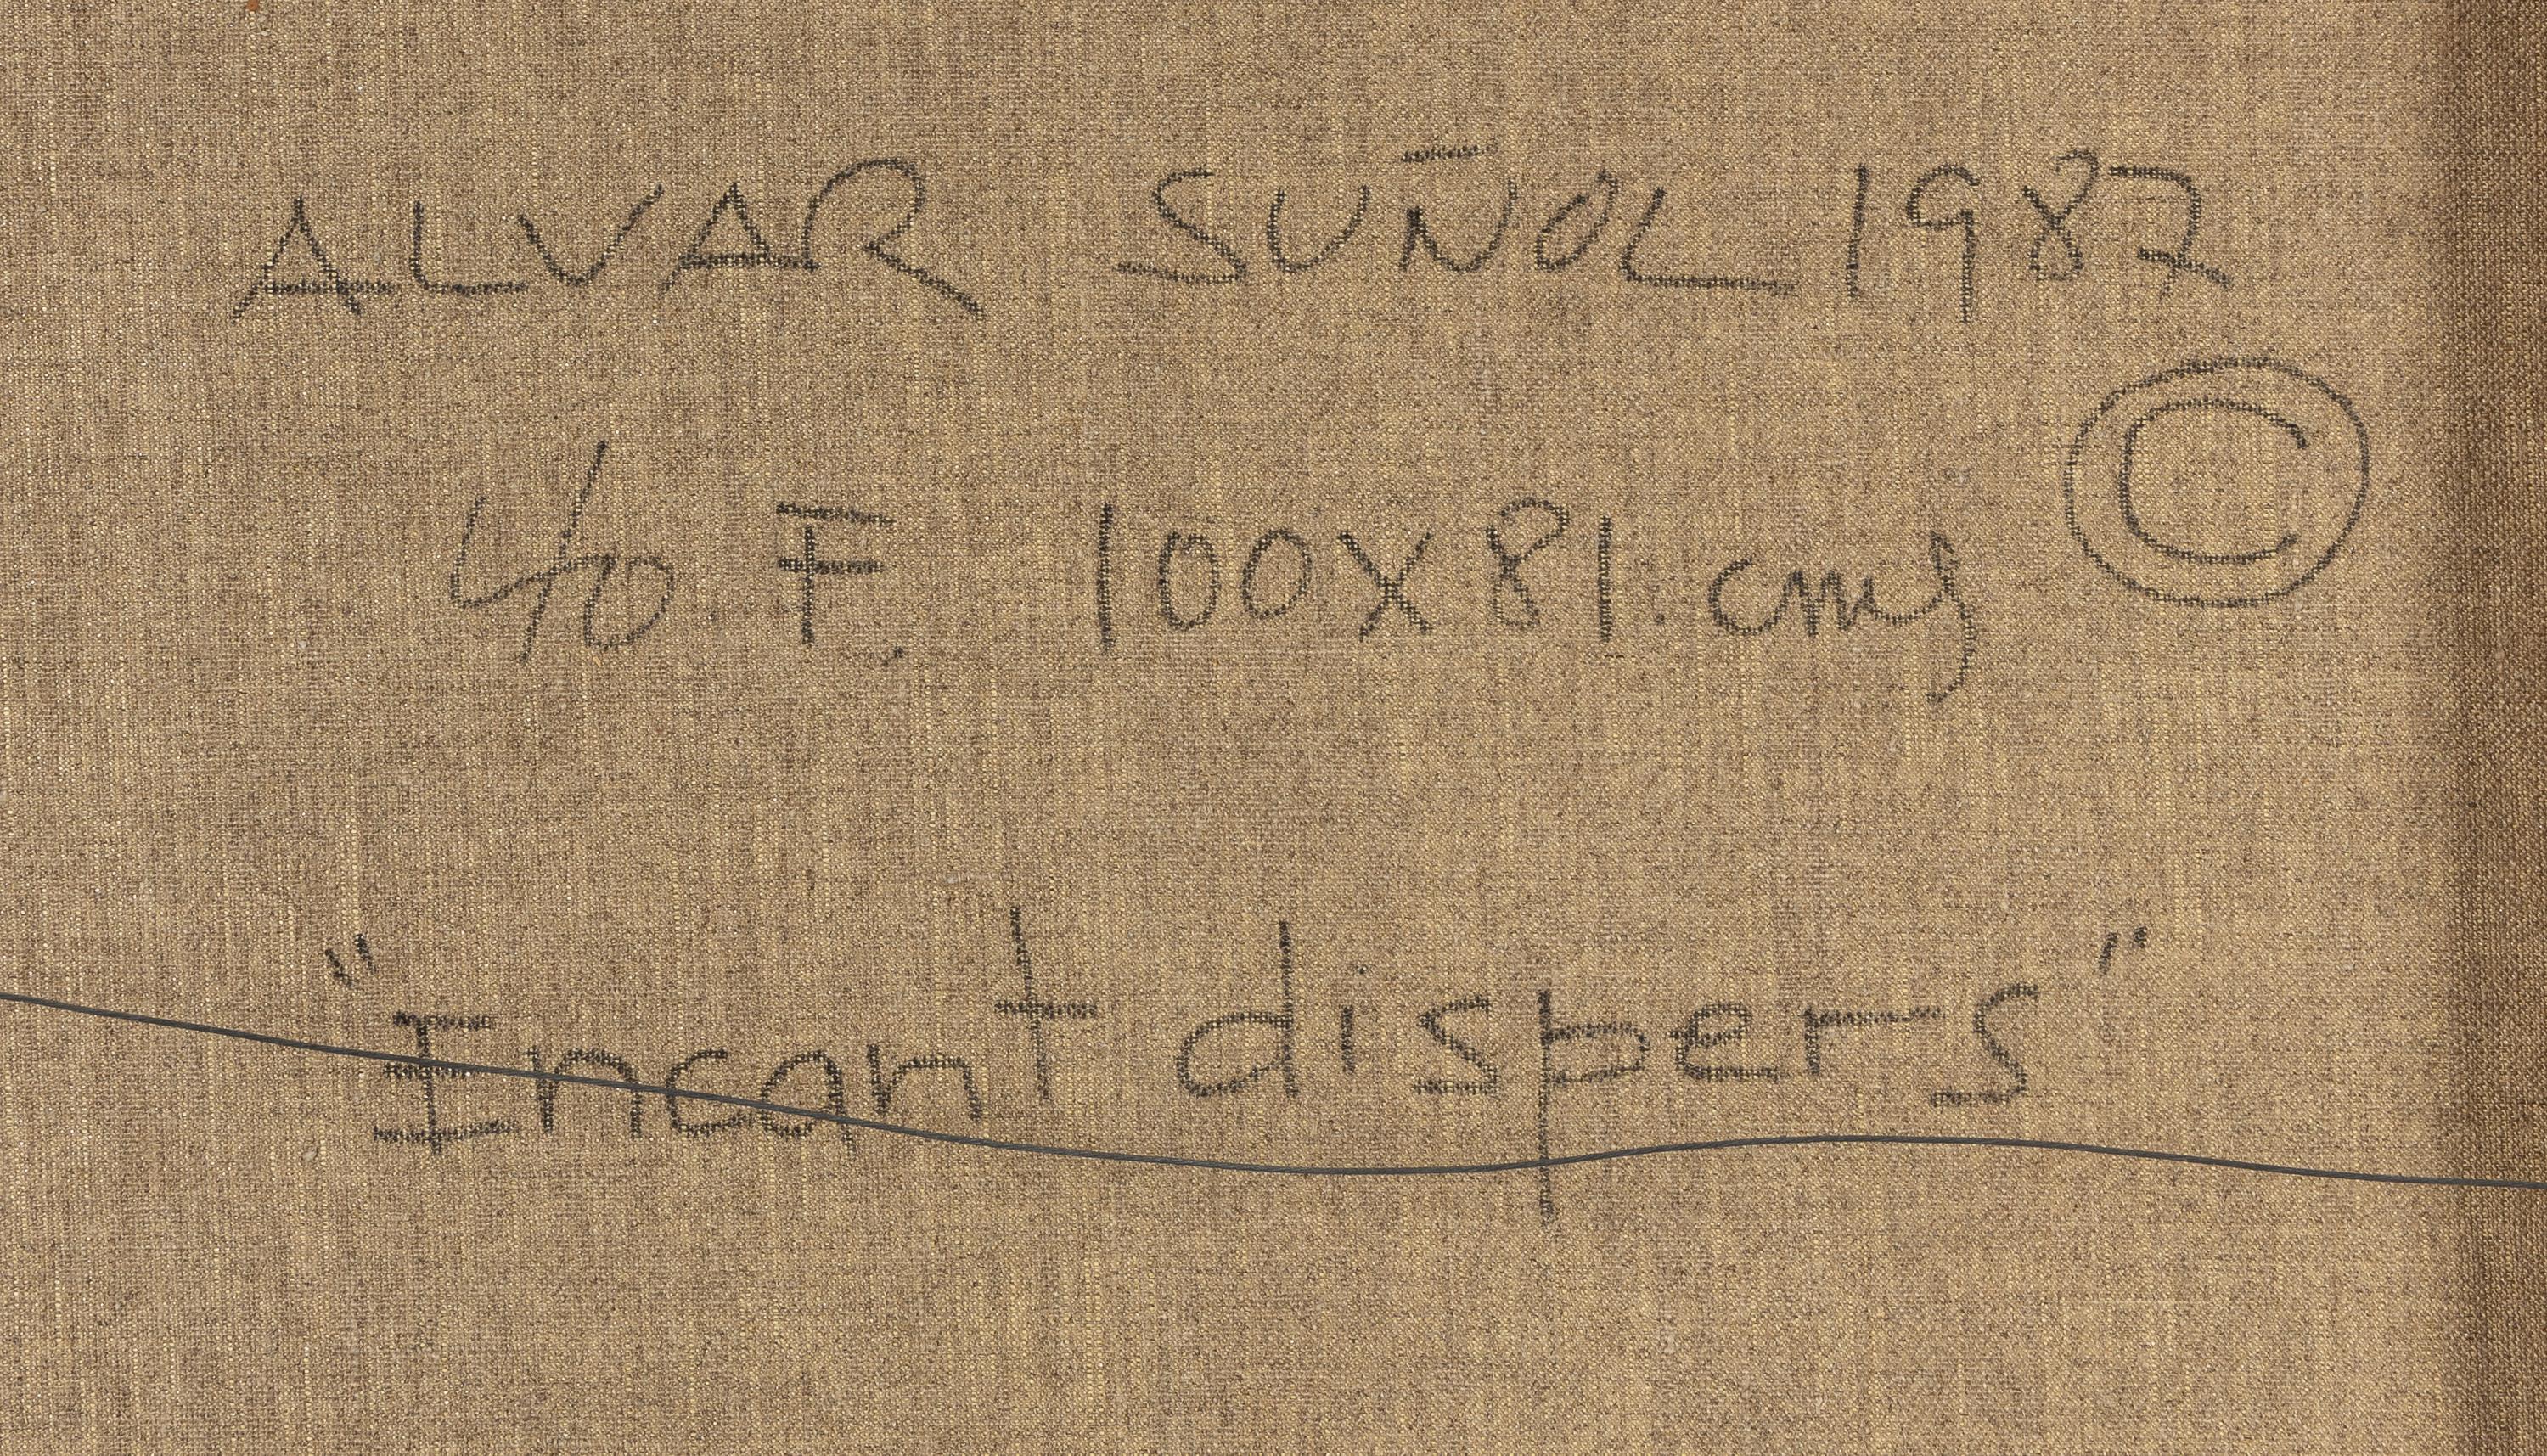 ALVAR SUÑOL 1987
40. F. 100X81. cms ©
"Encant dispers"